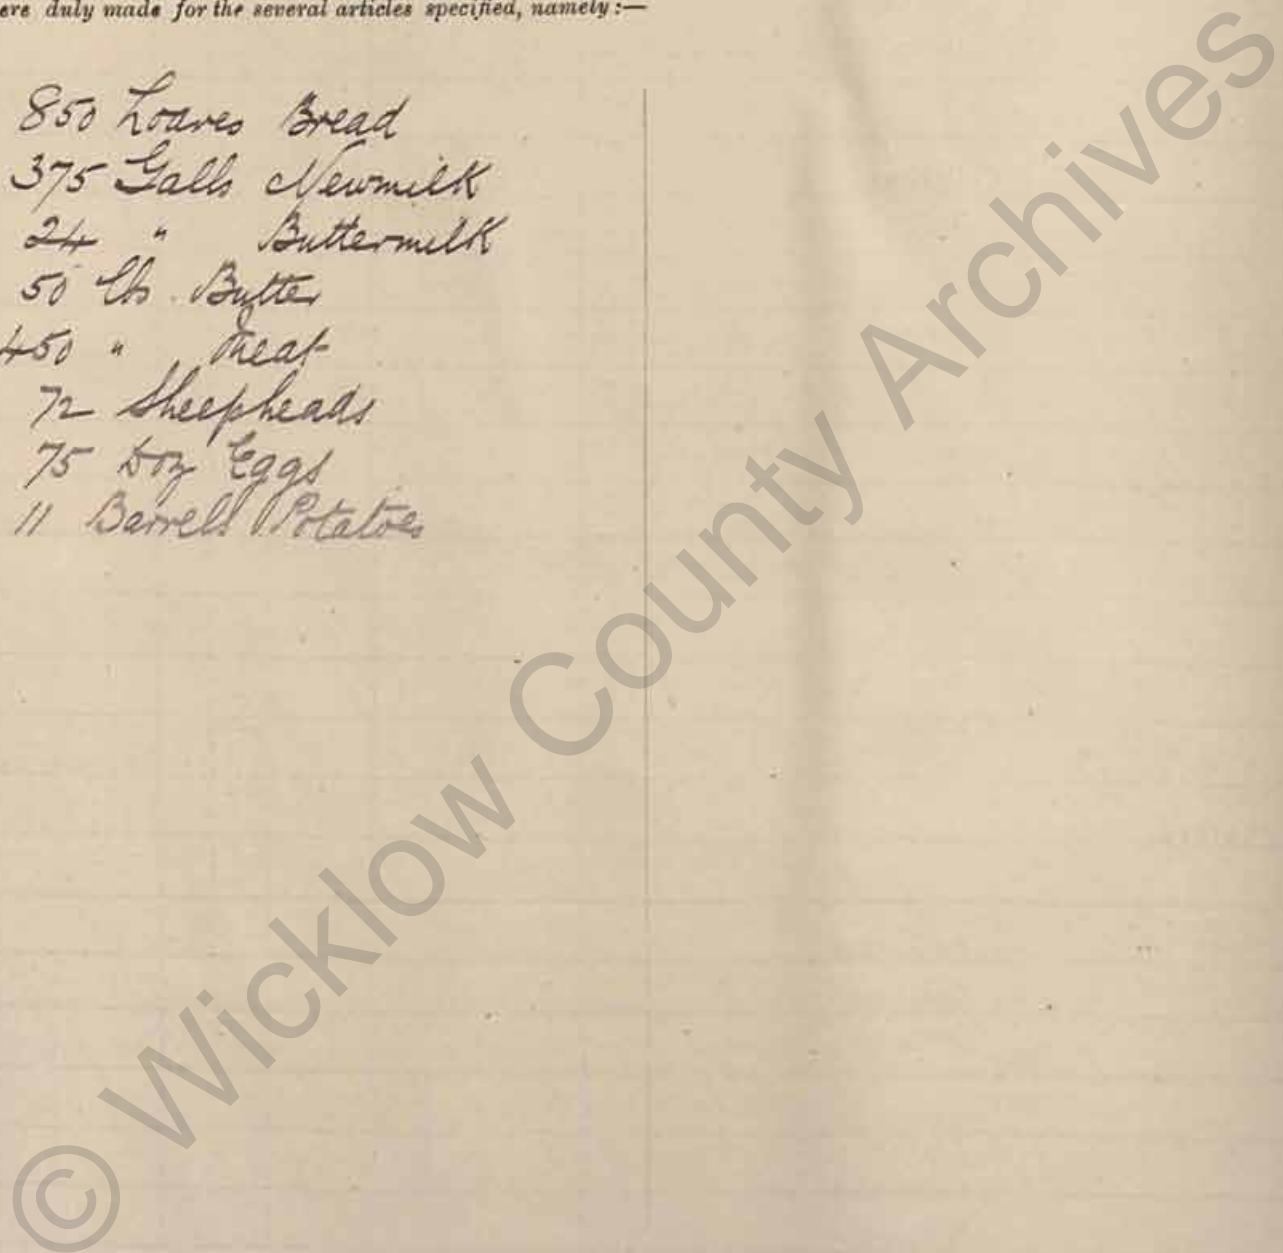 ere duly made for the several articles specified, namely:—
850 Loaves Bread
375 Galls Newmilk
24 " Buttermilk
50 lbs Butter
450 " Meat
72 Sheepheads
75 Doz Eggs
11 Barrels Potatoes
© Wicklow County Archives